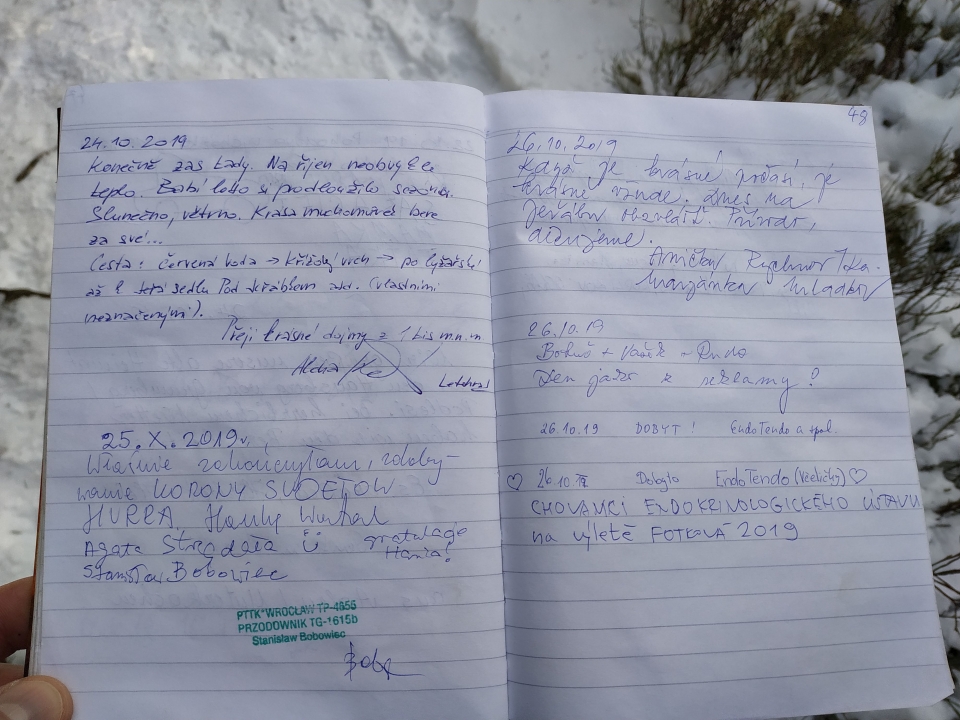 24.10.2019
Konečně zas tady. Na říjen neobvykle
teplo. Babí léto si prodloužilo sezónu.
Slunečno, větrno. Krása muchomůrek bere
za své...
Cesta: červená voda → Křížový vrch → po lyžařské
až k sedlu Pod Jeřábkem atd. (vlastními
neznačenými).
Přeji krásné dojmy z
Letohrad
25.X.2019r.
Właśnie zakończyłam, zdoby-
wanie KORONY SUDETÓW
HURRA,
Agata gratulacje
Hania!
Stanisław Bobowiec
PTTK "WROCŁAW TP-4856
PRZODOWNIK TG-1615b
Stanisław Bobowiec
48
26.10.2019
Když je krásné počasí, je
krásně dnes na
Jeřábu. Přírodo,
děkujeme.
Mladkov
26.10.19
Bohuš + Vašek + Ruda
Den jako z reklamy!
26.10.19 DOBYT! EndoTendo a spol.
♡ 26.10 Dobyto EndoTendo (včeličky) ♡
CHOVANCI ENDOKRINOLOGICKÉHO ÚSTAVU
na výletě FOTKOVÁ 2019